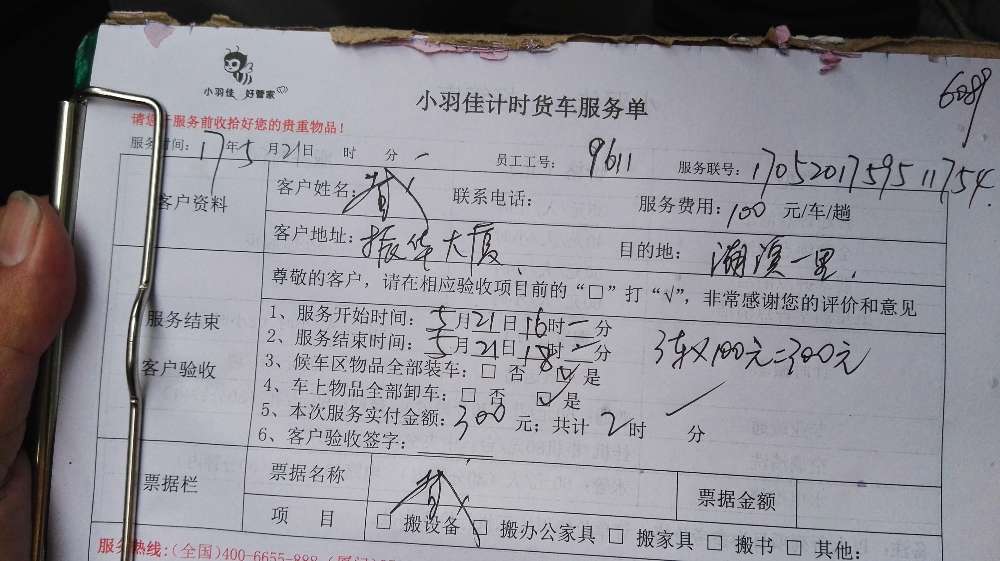 小羽佳 好管家
小羽佳计时货车服务单
6089
请您于服务前收拾好您的贵重物品!
服务时间: 17年5月21日 时 分 员工工号: 9611 服务联号: 17052017595 11754
客户资料
客户姓名: 联系电话: 服务费用: 100 元/车/趟
客户地址: 振华大厦 目的地: 湖滨一里
尊敬的客户,请在相应验收项目前的“□”打“√”,非常感谢您的评价和意见
服务结束
客户验收
1、服务开始时间: 5月21日16时一分
2、服务结束时间: 5月21日18时一分
3车X100元=300元
3、候车区物品全部装车: □ 否 ☑ 是
4、车上物品全部卸车: □ 否 ☑ 是
5、本次服务实付金额: 300 元; 共计 2时 分
6、客户验收签字:
票据栏
票据名称 票据金额
项 目 □ 搬设备 □ 搬办公家具 □ 搬家具 □ 搬书 □ 其他:
服务热线:(全国)400-6655-888